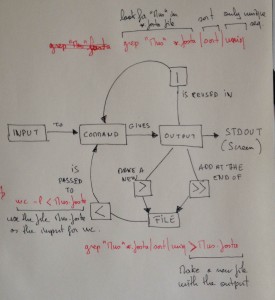 look for "Mus" in
* fasta file
sort
only unique
seq.
grep "Mus" * fasta | sort | uniq
|
IS REUSED IN
INPUT
TO
COMMAND
GIVES
OUTPUT
STDOUT
(Screen)
IS
PASSED
TO
MAKE A
NEW
ADD AT THE
END OF
<
>
>>
FILE
wc -l < Mus.fasta
use the file Mus.fasta
as the input for wc.
grep "Mus" *.fasta | sort | uniq > Mus.fasta
Make a new file
with the output